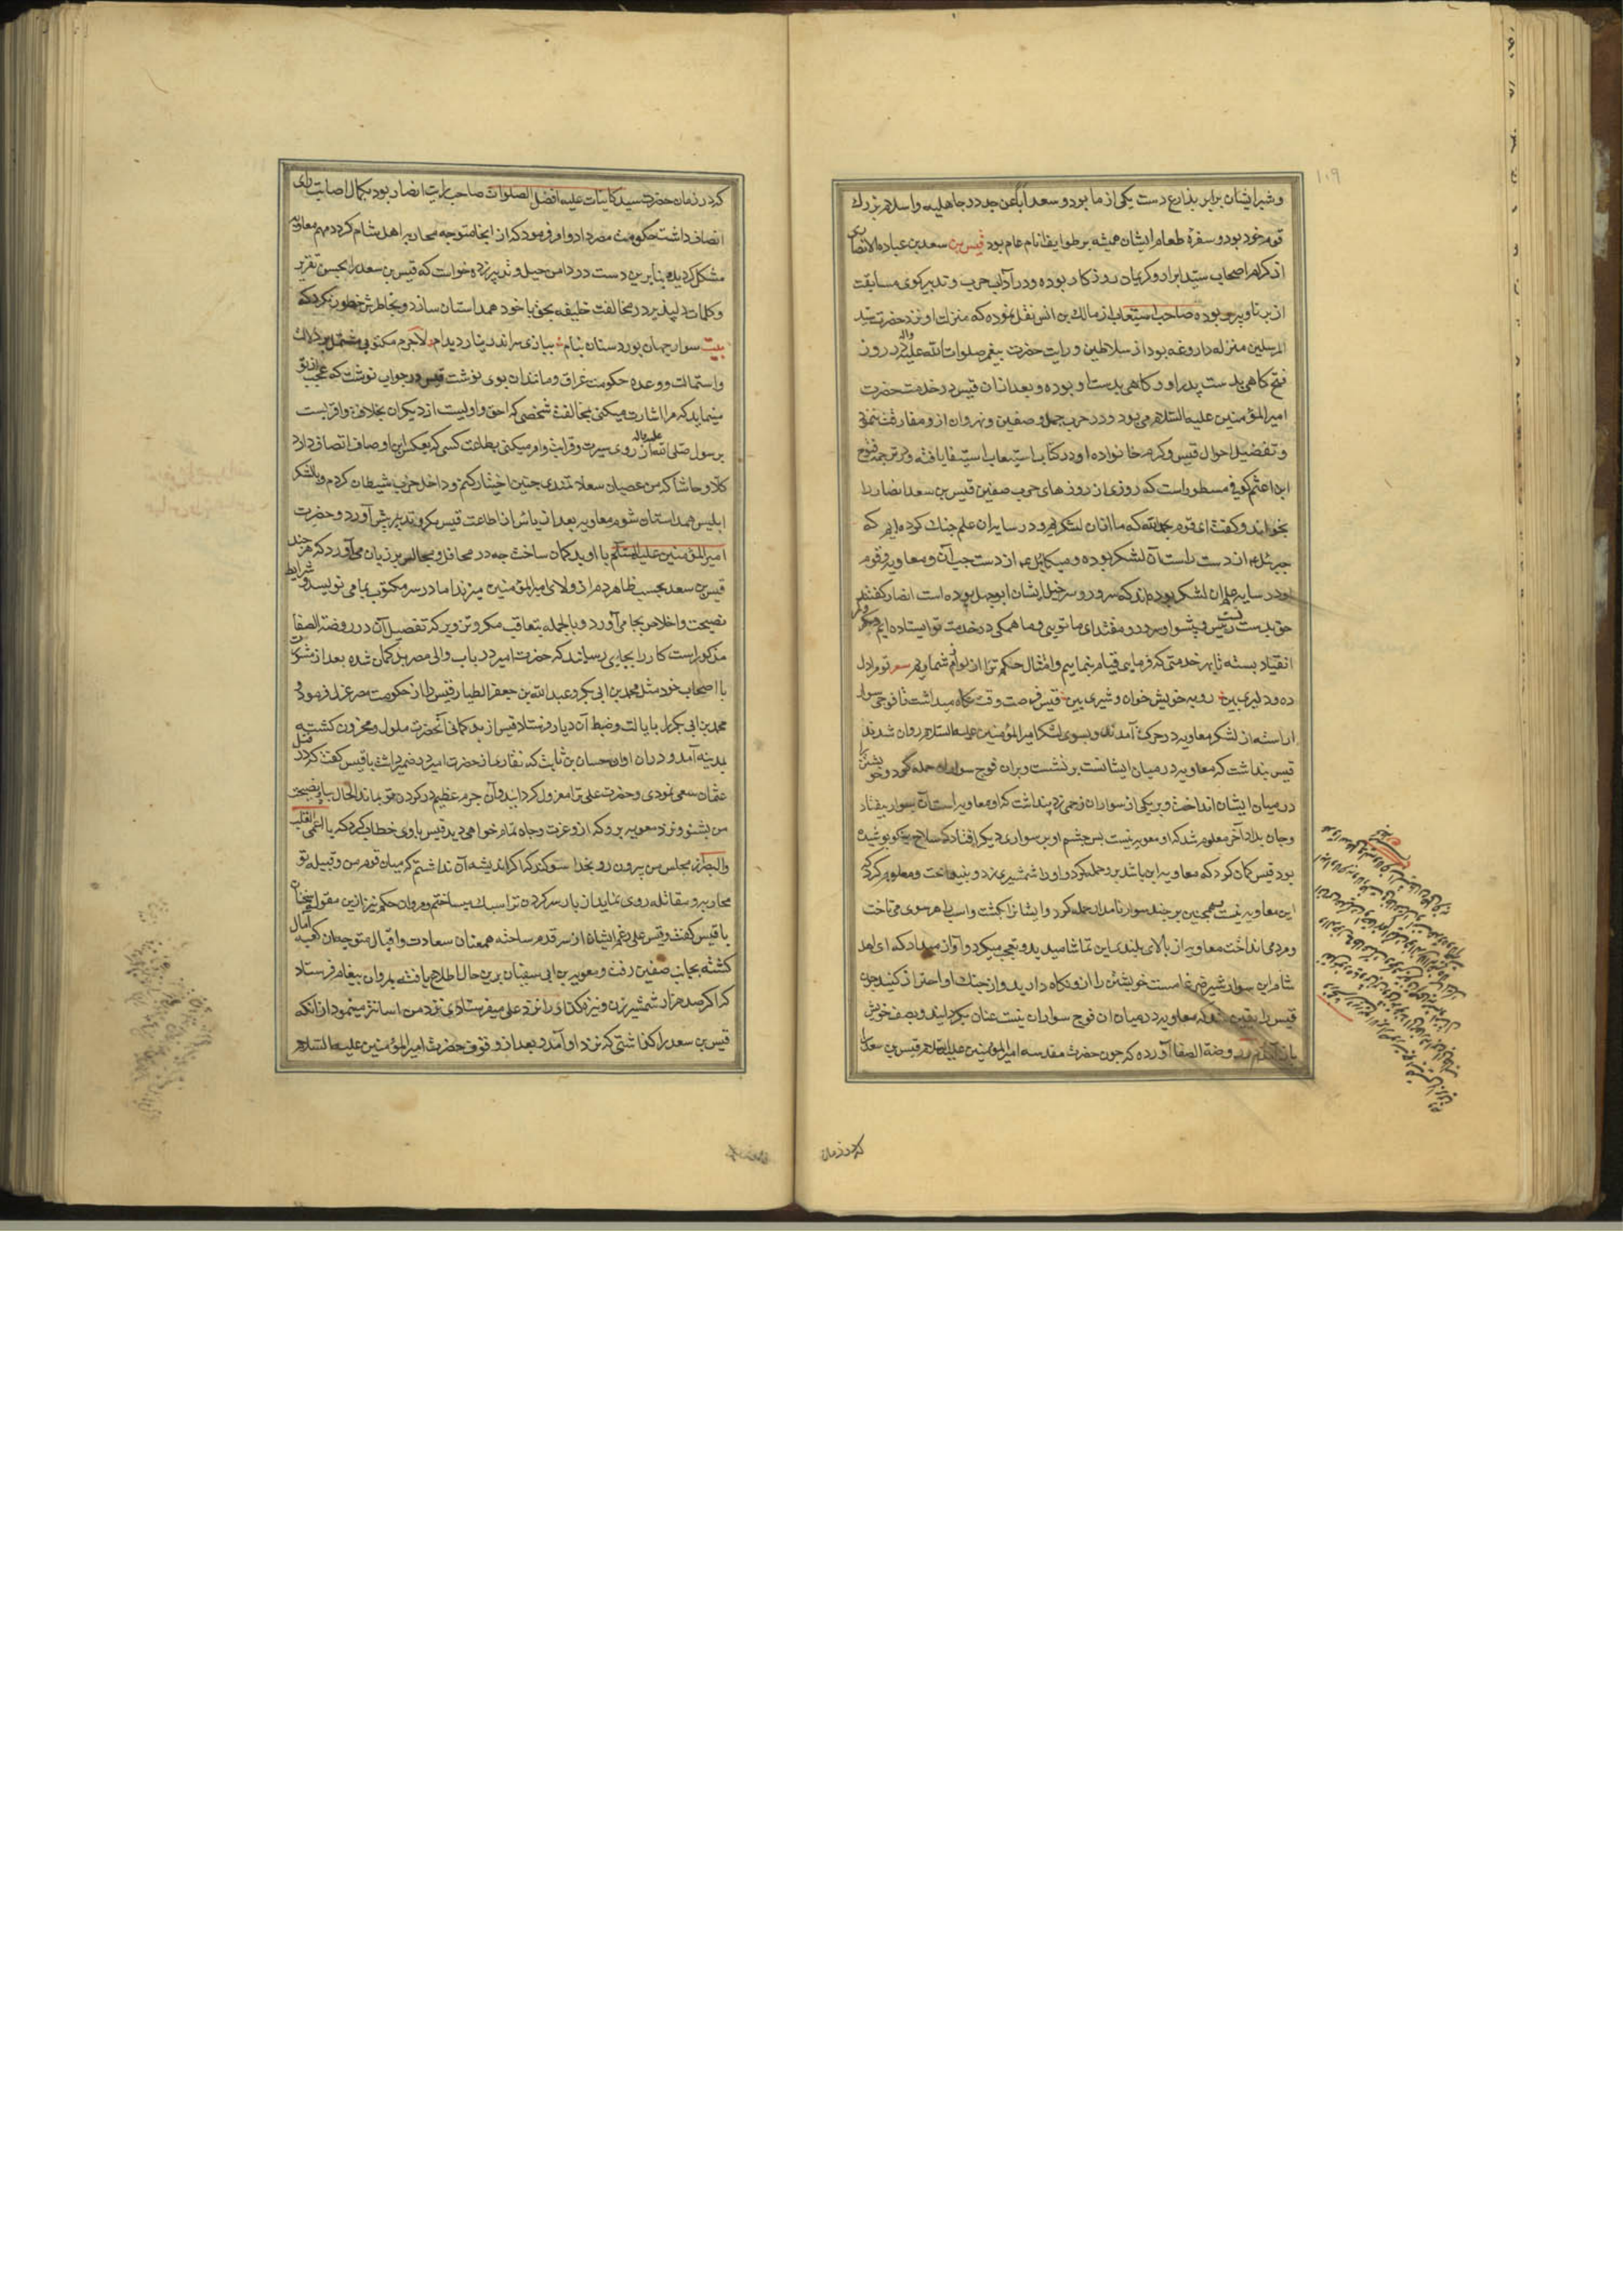 ۱۰۹
و شبرایشان برابر بذراع دست یکی از ما بود و سعد اباً عن جد در جاهلیه و اسلام بزرک
قوم خود بود و سفرهٔ طعام ایشان همیشه بر طوایف انام عام بود قیس بن سعد بن عباده الانصاری
از کرام اصحاب سید ابرار و کریمان روزکار بوده و در آداب حرب و تدبیر کوی مسابقت
از برنا و پیر ربوده صاحب استیعاب از مالک بن انس نقل نموده که منزلت او نزد حضرت سید
المرسلین منزله داروغه بود از سلاطین و رایت حضرت پیغمبر صلوات الله علیه و اله در روز
فتح کاهی بدست پدر او و کاهی بدست او بوده و بعد از ان قیس در خدمت حضرت
امیر المؤمنین علیه السلام می بود و در حرب جمل و صفین و نهروان از و مفارقت ننمود
و تفضیل احوال قیس و کرم خانواده او در کتاب استیعاب استیفا یافته و در ترجمه فتوح
ابن اعثم کوفی مسطور است که روزی از روزهای حرب صفین قیس بن سعد انصار را
بخواند و کفت ای قوم بحمد الله که ما اتان لشکریم و در سایر ان علم جنک کرده ایم که
جبرئیل از دست راست آن لشکر بوده و میکائیل از دست چپ آن و معاویه و قوم
او در سایه علم ان لشکر بوده اند که سرور و سرخیل ایشان ابوجهل بوده است انصار کفتند
حق بدست تست رئیس و پیشوا و سرور و مقتدای ما تویی و ما همکی در خدمت تو ایستاده ایم و کمر
انقیاد بسته تا بهر خدمتی که فرمایی قیام نماییم و امتثال حکم ترا از لوازم شماریم شعر تو مرا دل
ده و دلیری بین روبه خویش خوان و شیری بین قیس فرصت وقت نکاه میداشت تا فوجی سوار
اراسته از لشکر معاویه در حرکت آمدند و بسوی لشکر امیر المؤمنین علیه السلام روان شدند
قیس پنداشت که معاویه در میان ایشانست بر نشست و بران فوج سواران حمله کرد و خویشتن را
در میان ایشان انداخت و بر یکی از سواران زخمی زد پنداشت که او معاویه است آن سوار بیفتاد
و جان بداد آخر معلوم شد که او معویه نیست پس چشم او بر سواری دیکر افتاد که سلاح نیکو پوشیده
بود قیس کمان کرد که معاویه این باشد برو حمله کرد و او را شمشیری زد و بینداخت و معلوم کرد که
این معاویه نیست همچنین بر چند سوار نامدار حمله کرد و ایشان را بکشت و اسب را هر سوی می تاخت
و مرد می انداخت معاویه از بالای بلندی این تماشا میدید و تعجب میکرد و آواز میداد که ای اهل
شام این سوار شیر ضرغام است خویشتن را از و نکاه دارید و از جنک او احتراز کنید چون
قیس را یقین شد که معاویه در میان ان فوج سواران نیست عنان بکردانید و بصف خویش
باز آمد در روضة الصفا آورده که چون حضرت مقدسه امیر المؤمنین علیه السلام قیس بن سعد را
که در زمان
که در زمان حضرت سید کاینات علیه افضل الصلوات صاحب رایت انصار بود بکمال اصابت رای
اتصاف داشت حکومت مصر داد و امر فرمود که از انجا متوجه محاربه اهل شام کردد مهم معاویه
مشکل کردید بنابرین دست در دامن حیل و تدبیر زده خواست که قیس بن سعد را بحسن تقریر
و کلمات دلپذیر در مخالفت خلیفه بحق با خود همداستان سازد و بخاطرش خطور نکرد که
بیت سوار جهان پور دستان سام ببازی سر اندر نیارد بدام لاجرم مکتوبی مشتمل بر دلالت
و استمالت و وعده حکومت عراق و مانند ان بوی نوشت قیس در جواب نوشت که عجب از تو
مینماید که مرا اشارت میکنی بمخالفت شخصی که احق و اولیست از دیکران بخلافت و اقربست
برسول صلی الله علیه و اله از روی سیرت و قرابت و امر میکنی بطاعت کسی که بعکس این اوصاف اتصاف دارد
کلا و حاشا که من عصیان سعادتمندی چنین اختیار کنم و داخل حزب شیطان کردم و با لشکر
ابلیس همداستان شوم معاویه بعد از یاس از اطاعت قیس مکر و تدبیر پیش آورد و حضرت
امیر المؤمنین علیه السلام را با او بد کمان ساخت چه در محافل و مجالس بر زبان می آورد که هر چند
قیس بن سعد بحسب ظاهر دم از ولای امیر المؤمنین میزند اما در سر مکتوب بما می نویسد و شرایط
نصیحت و اخلاص بجا می آورد و بالجمله بتعاقب مکر و تزویر که تفصیل آن در روضة الصفا
مذکور است کار را بجایی رسانید که حضرت امیر در باب والی مصر بد کمان شده بعد از مشورت
با اصحاب خود مثل محمد بن ابی بکر و عبد الله بن جعفر الطیار قیس را از حکومت مصر عزل فرمود و
محمد بن ابی بکر را بایالت و ضبط آن دیار فرستاد قیس از بد کمانی آنحضرت ملول و محزون کشته
بمدینه آمد و در ان اوان حسان بن ثابت که نقاری از حضرت امیر در ضمیر داشت با قیس کفت که در قتل
عثمان سعی نمودی و حضرت علی ترا معزول کردانید و آن جرم عظیم در کردن تو بماند الحال بیا و نصیحت
من بشنو و نزد معویه برو که از و عزت و جاه تمام خواهی دید قیس با وی خطاب کرد که یا اعمی القلب
والبصر از مجلس من بیرون رو بخدا سوکند که اکر اندیشه آن نداشتم که میان قوم من و قبیله تو
محاربه و مقاتله روی نماید از بار سر کردن ترا سبک میساختم و مروان حکم نیز ازین مقوله سخنان
با قیس کفت و قیس علی رغم ایشان از سر قدم ساخته همعنان سعادت و اقبال متوجه ان کعبه آمال
کشته بجانب صفین رفت و معویه بن ابی سفیان برین حال اطلاع یافته بمروان پیغام فرستاد
که اکر صد هزار شمشیر زن و نیزه کذار را نزد علی میفرستادی نزد من اسانتر مینمود از انکه
قیس بن سعد را کذاشتی که نزد او آمد و بعد از وقوف حضرت امیر المؤمنین علیه السلام